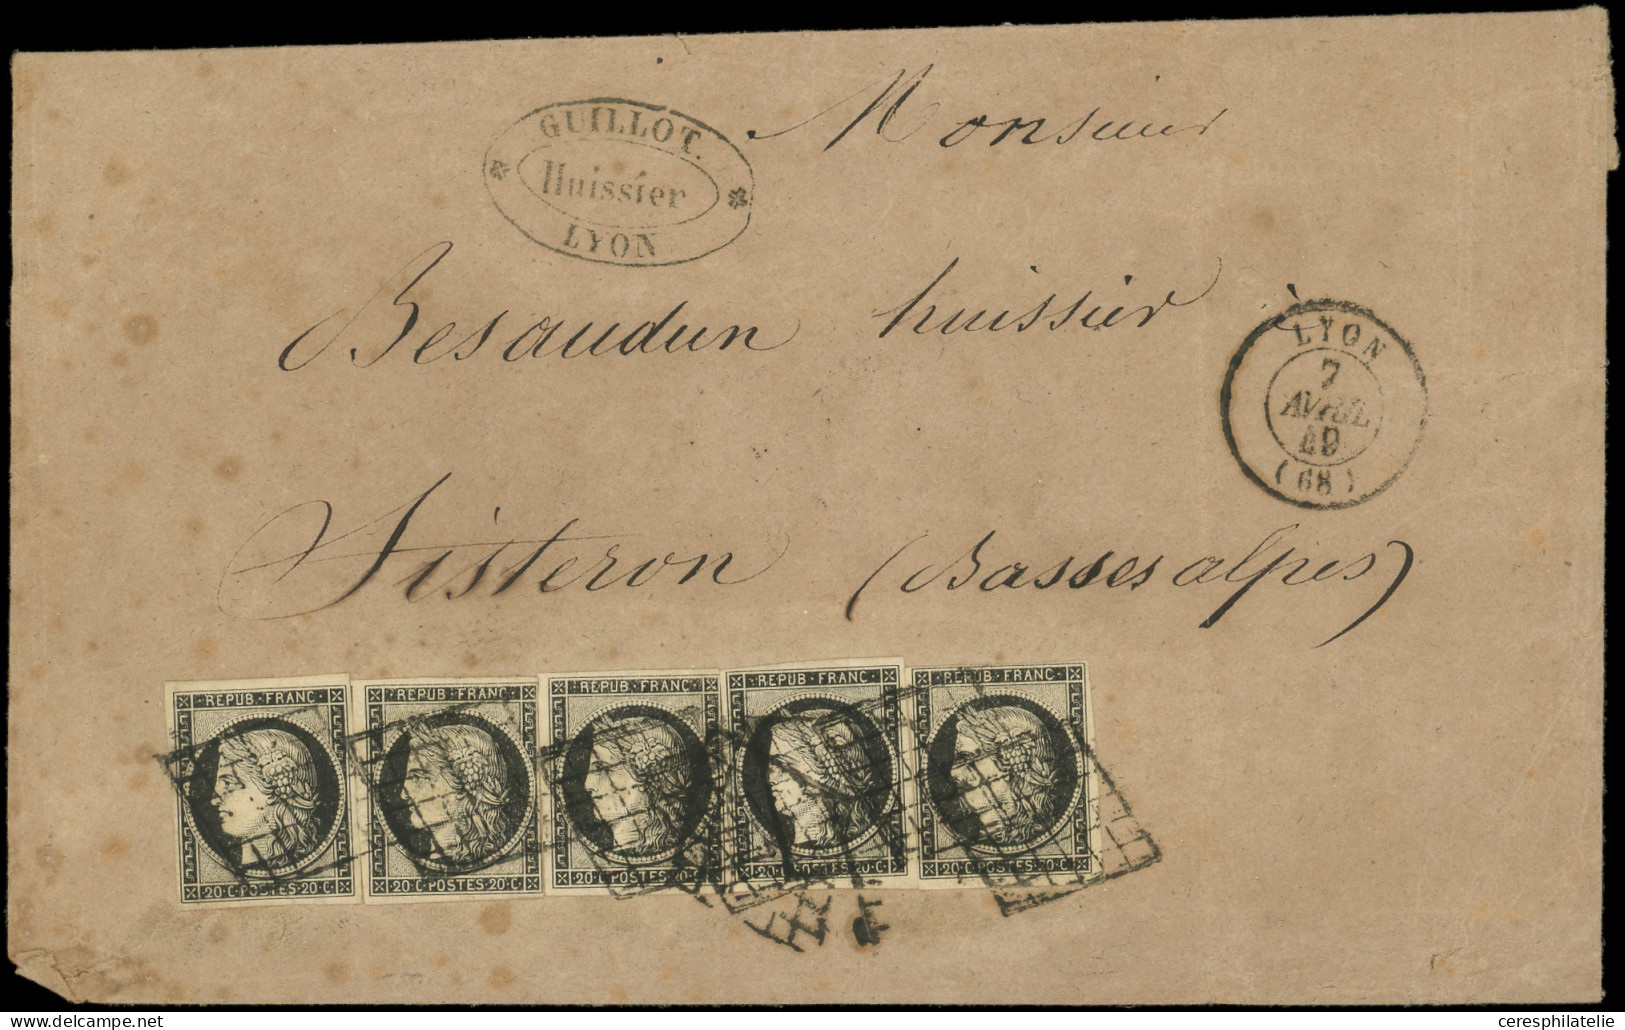 Monsieur
GUILLOT.
Huissier
LYON
Besaudun huissier
à
LYON
7
AVRIL
49
(68)
Sisteron (Basses alpes)
REPUB·FRANC·
20·C·POSTES·20·C·
REPUB·FRANC·
20·C·POSTES·20·C·
REPUB·FRANC·
20·C·POSTES·20·C·
REPUB·FRANC·
20·C·POSTES·20·C·
REPUB·FRANC·
20·C·POSTES·20·C·
ceresphilatelie